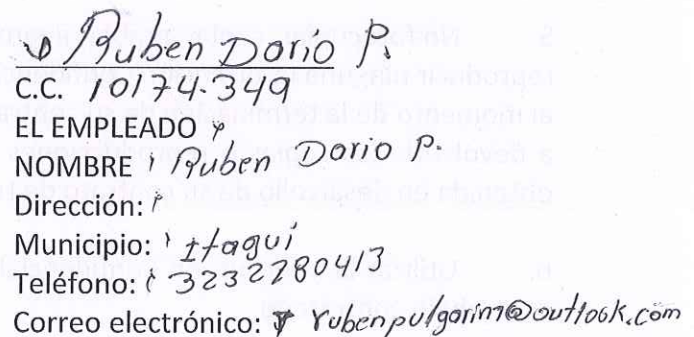 Ruben Dario P.
C.C. 10174.349
EL EMPLEADO
NOMBRE Ruben Dario P.
Dirección:
Municipio: Itagui
Teléfono: 3232280413
Correo electrónico: rubenpulgarin1@outlook.com